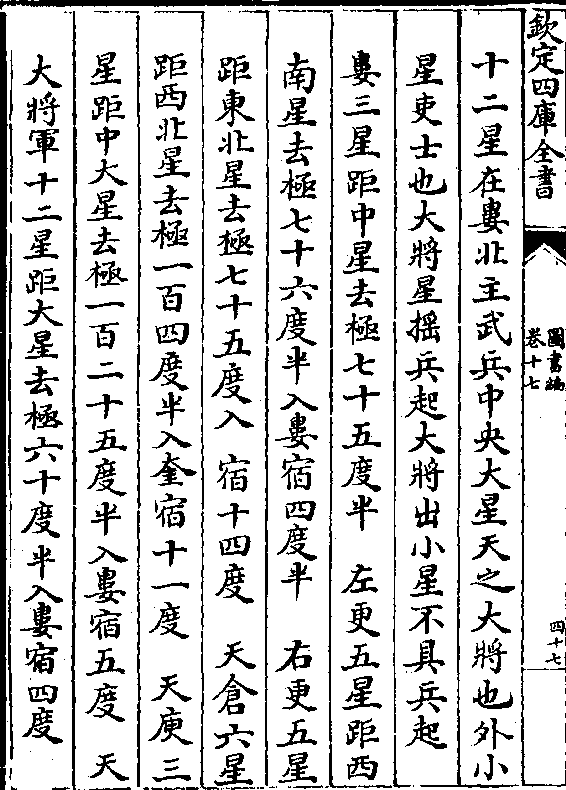 欽定四庫全書
圖書編
卷十七
四十七
十二星在婁北主武兵中央大星天之大將也外小
星吏士也大將星揺兵起大將出小星不具兵起
婁三星距中星去極七十五度半 左更五星距西
南星去極七十六度半入婁宿四度半 右更五星
距東北星去極七十五度入 宿十四度 天倉六星
距西北星去極一百四度半入奎宿十一度 天庾三
星距中大星去極一百二十五度半入婁宿五度 天
大將軍十二星距大星去極六十度半入婁宿四度